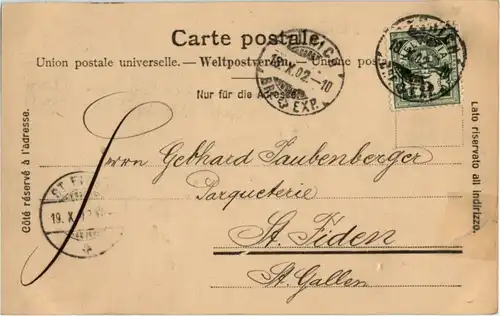 Carte postale.
Union postale universelle. — Weltpostverein. — Unione postale
Nur für die Adresse.
ZÜRICH
19.X.02.-10
BRF. EXP.
Côté réservé à l'adresse.
Lato riservato all indirizzo.
Herrn Gebhard Taubenberger
Parqueterie
St. Fiden
St. Gallen
ST. FI
19. X.